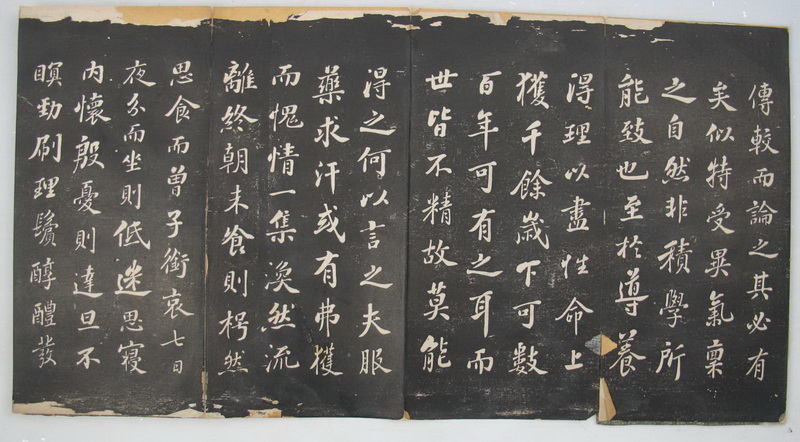 傳較而論之其必有
矣似特受異氣稟
之自然非積學所
能致也至於導養
得理以盡性命上
獲千餘歲下可數
百年可有之耳而
世皆不精故莫能
得之何以言之夫服
藥求汗或有弗獲
而愧情一集渙然流
離終朝未飡則枵然
思食而曾子銜哀七日
夜分而坐則低迷思寢
內懷殷憂則達旦不
瞑勁刷理鬢醇醴發